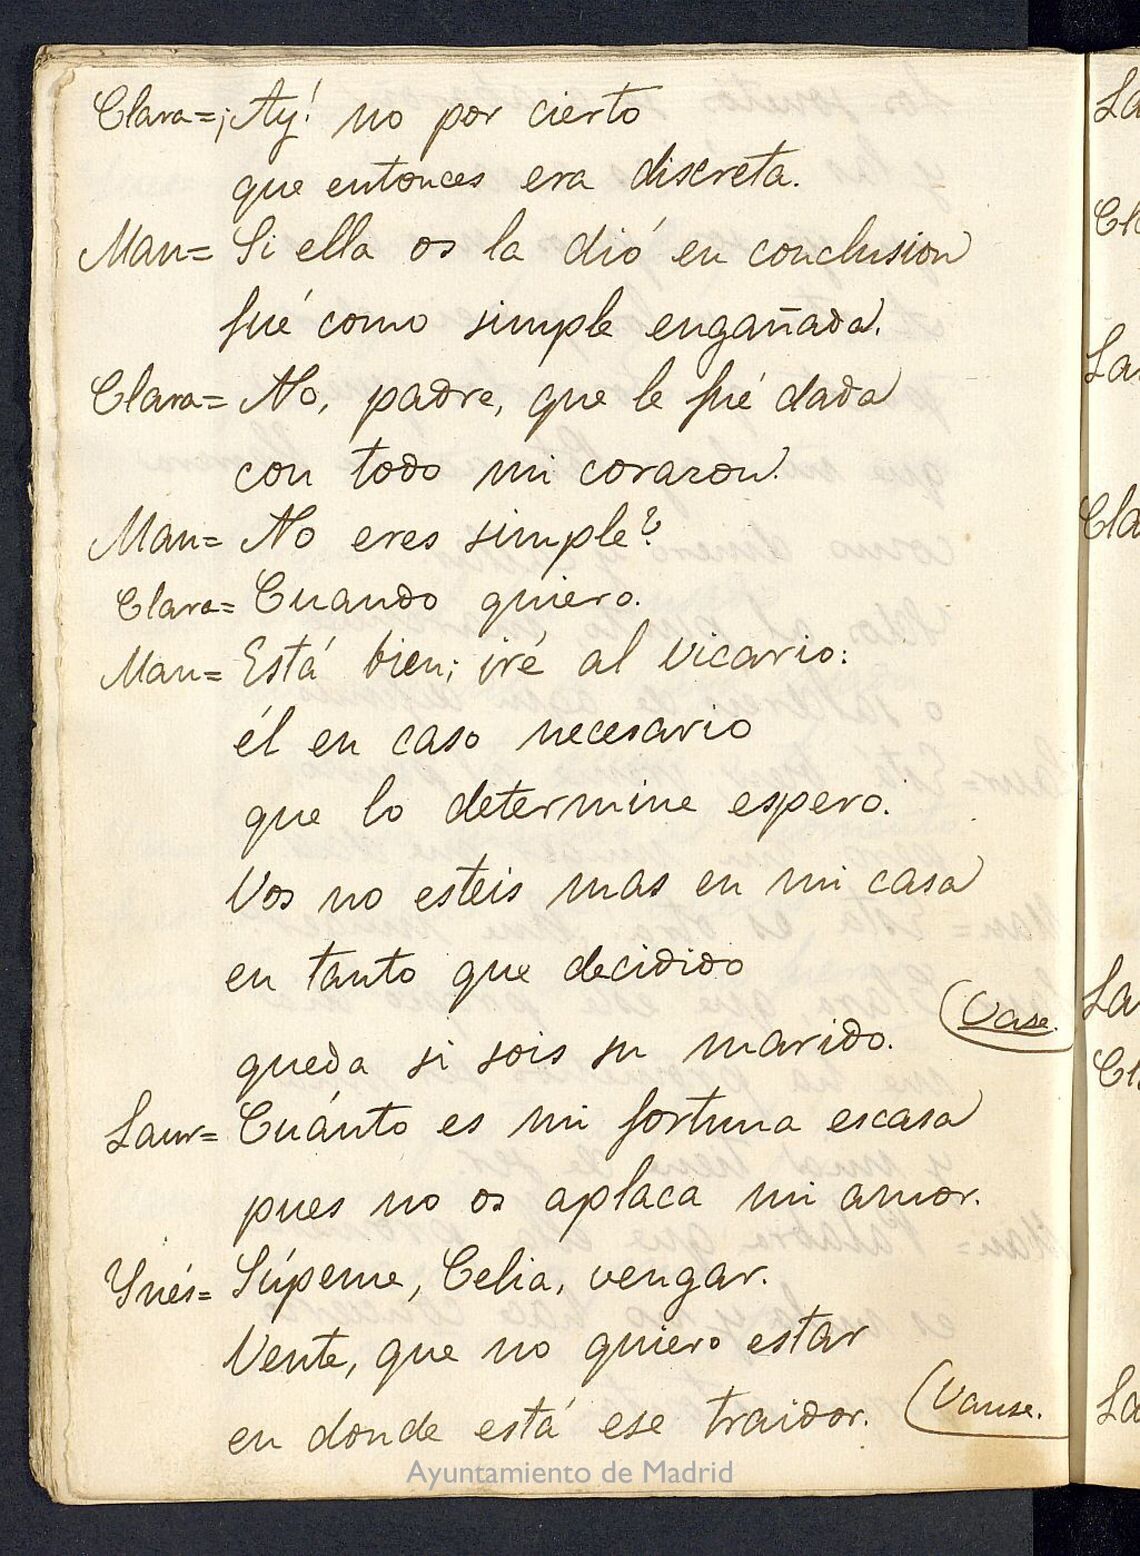 Clara=¡Ay! no por cierto
que entonces era discreta.
Man= Si ella os la dió en conclusion
fué como simple engañada.
Clara= No, padre, que le fué dada
con todo mi corazon.
Man= No eres simple?
Clara= Cuando quiero.
Man= Está bien; iré al Vicario:
él en caso necesario
que lo determine espero.
Vos no esteis mas en mi casa
en tanto que decidido
queda si sois su marido. (Vase.
Laur= Cuánto es mi fortuna escasa
pues no os aplaca mi amor.
Ynés= Súpeme, Celia, vengar.
Vente, que no quiero estar
en donde está ese traidor. (Vanse.
Ayuntamiento de Madrid
La
Cl
La
Cla
La
Cl
La